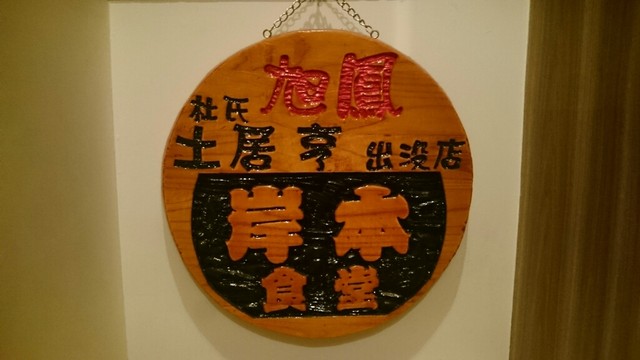 旭鳳
杜氏
土居亨 出没店
岸本
食堂